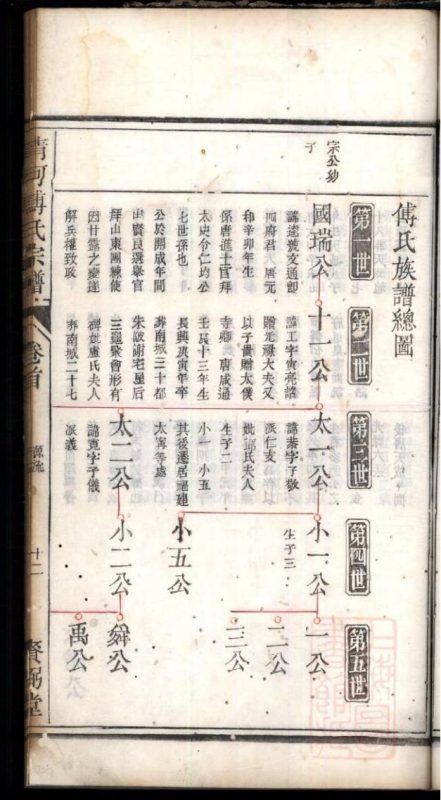 傅氏族譜總圖
第一世
第二世
第三世
第四世
第五世
宗公幼
子
國瑞公
諱遠號支通卽
四府君 唐元
和辛卯年生
係唐進士官拜
太史令仁均公
七世孫也
公於開成年間
由賢良選舉官
拜山東團練使
因甘露之變遂
解兵權致政
十一公
諱工字寅亮諡
贈光祿大夫又
以子貴贈太僕
寺卿 唐咸通
壬辰十三年生
長興庚寅年卒
葬南城二十都
朱陂謝宅屋后
三龍聚會形有
碑誌盧氏夫人
葬南城二十七
太一公
諱棐字子敬不
派仁支
妣鄔氏夫人
生子二
小一 小五
其後遷居福建
太寧等處
太二公
諱克字子儀
派義
小一公
生子三
小五公
小二公
一公
二公
三公
舜公
禹公
清河傅氏宗譜
卷首
源流
十二
賚弼堂